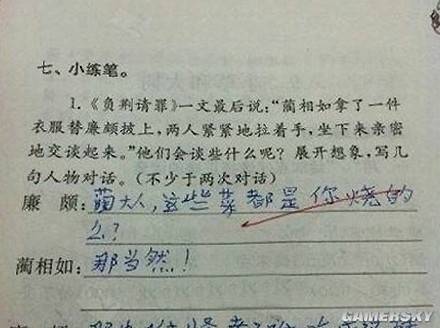 七、小练笔。
1.《负荆请罪》一文最后说:“蔺相如拿了一件
衣服替廉颇披上,两人紧紧地拉着手,坐下来亲密
地交谈起来。”他们会谈些什么呢?展开想象,写几
句人物对话。(不少于两次对话)
廉 颇:蔺大人,这些菜都是你烧的
么?
蔺相如:那当然!
GAMERSKY